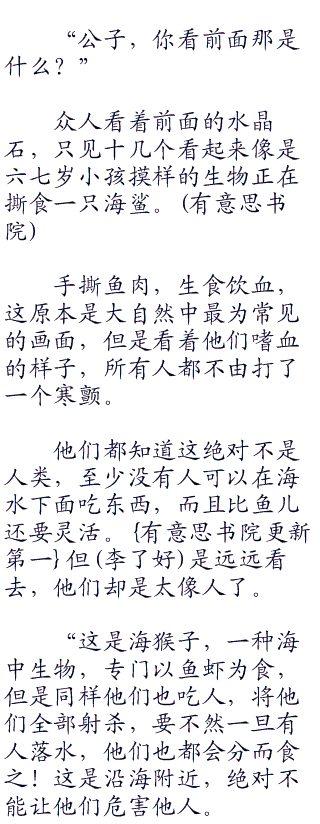 “公子，你看前面那是
什么？”
众人看着前面的水晶
石，只见十几个看起来像是
六七岁小孩摸样的生物正在
撕食一只海鲨。(有意思书
院)
手撕鱼肉，生食饮血，
这原本是大自然中最为常见
的画面，但是看着他们嗜血
的样子，所有人都不由打了
一个寒颤。
他们都知道这绝对不是
人类，至少没有人可以在海
水下面吃东西，而且比鱼儿
还要灵活。{有意思书院更新
第一}但(李了好)是远远看
去，他们却是太像人了。
“这是海猴子，一种海
中生物，专门以鱼虾为食，
但是同样他们也吃人，将他
们全部射杀，要不然一旦有
人落水，他们也都会分而食
之！这是沿海附近，绝对不
能让他们危害他人。